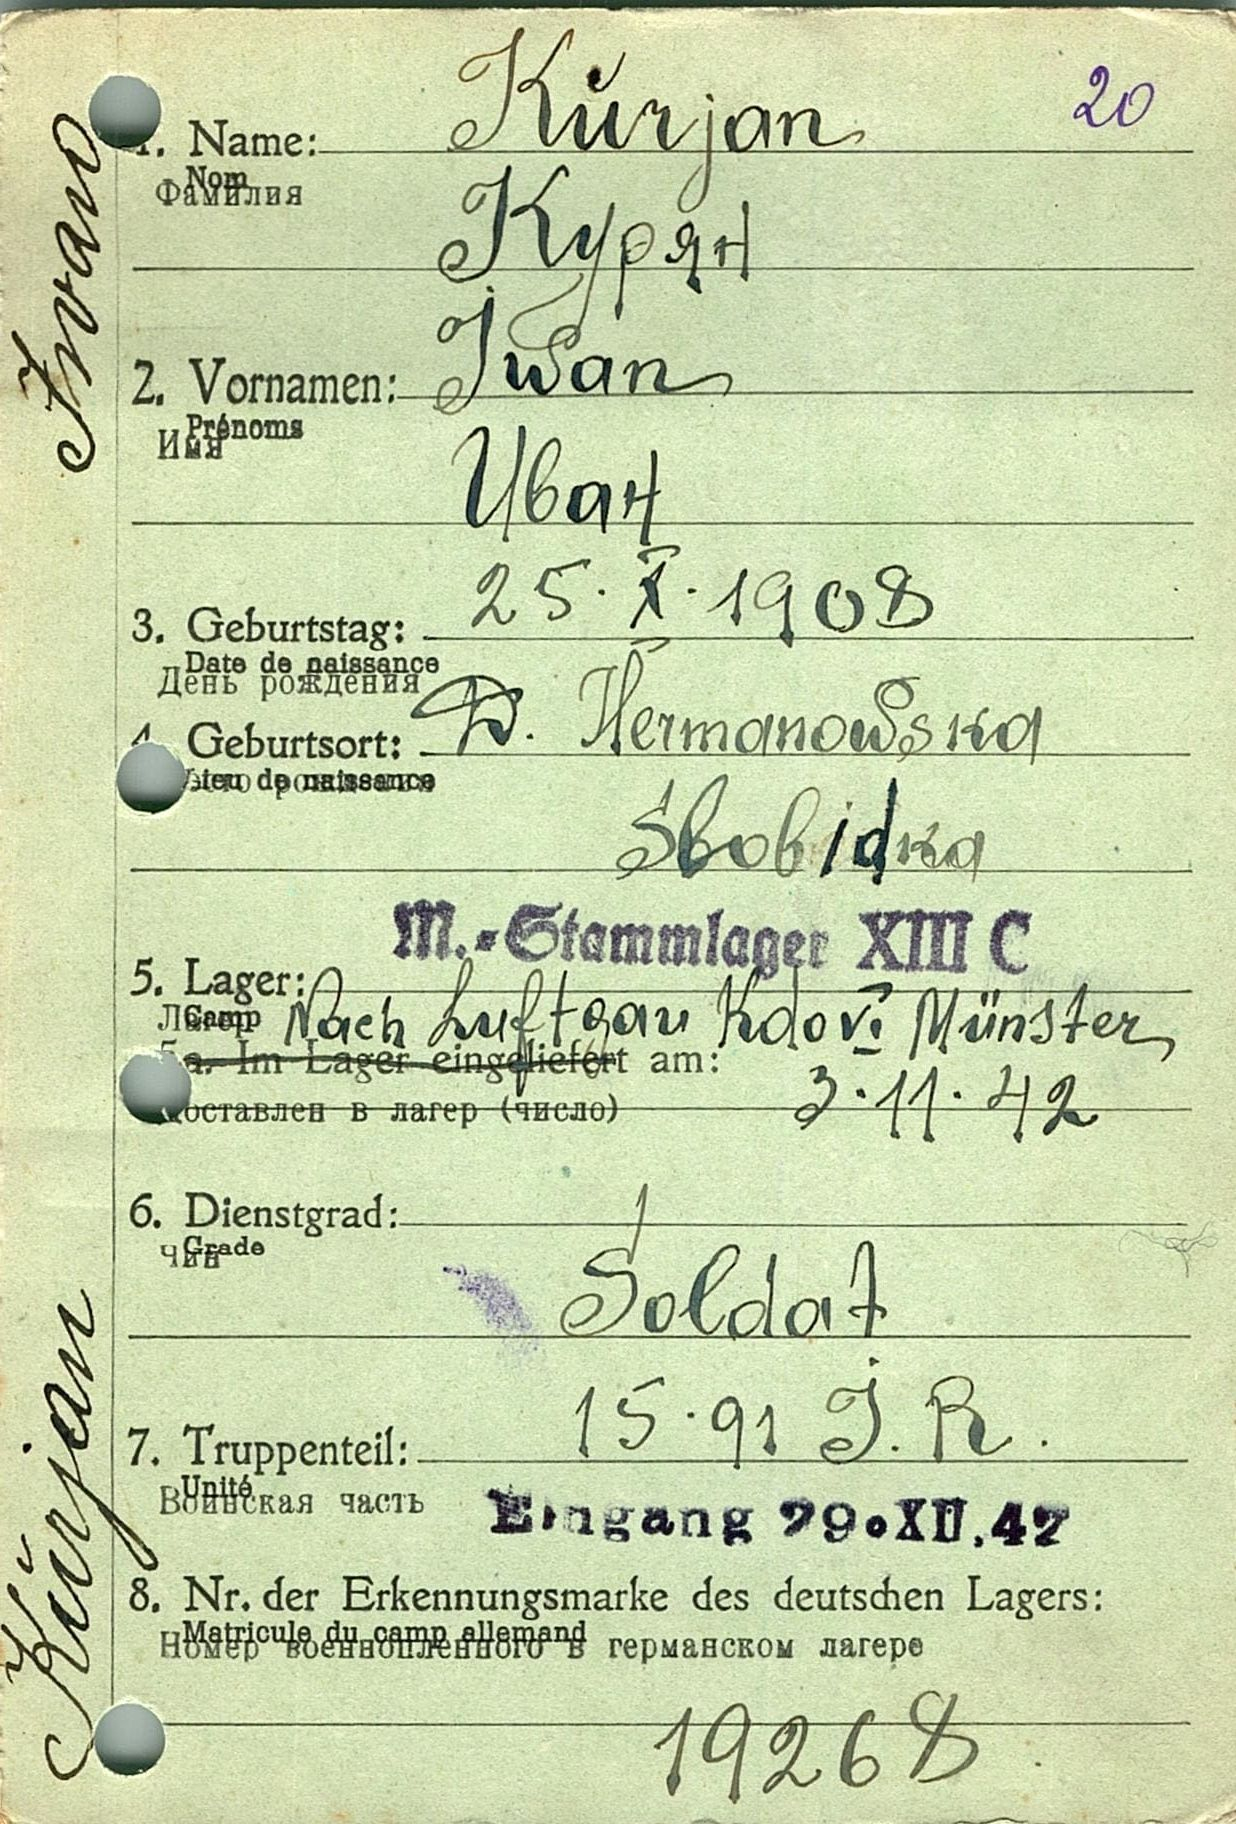 Kŭrjan
20
1. Name:
Nom
Фамилия
Курян
Iwan
2. Vornamen:
Prénoms
Имя
Иван
25. X. 1908
3. Geburtstag:
Date de naissance
День рождения
D. Hermanowska
4. Geburtsort:
Lieu de naissance
Sbobidka
M.-Stammlager XIII C
5. Lager:
Camp
Лагер
Nach Luftgau Kdo VI Münster
5a. Im Lager eingeliefert am:
3.11.42
Доставлен в лагер (число)
6. Dienstgrad:
Grade
Чин
Soldat
15. 91 J. R.
7. Truppenteil:
Unité
Воинская часть
Eingang 29.XII.42
8. Nr. der Erkennungsmarke des deutschen Lagers:
Matricule du camp allemand
Номер военнопленного в германском лагере
19268
Kŭrjan Iwan